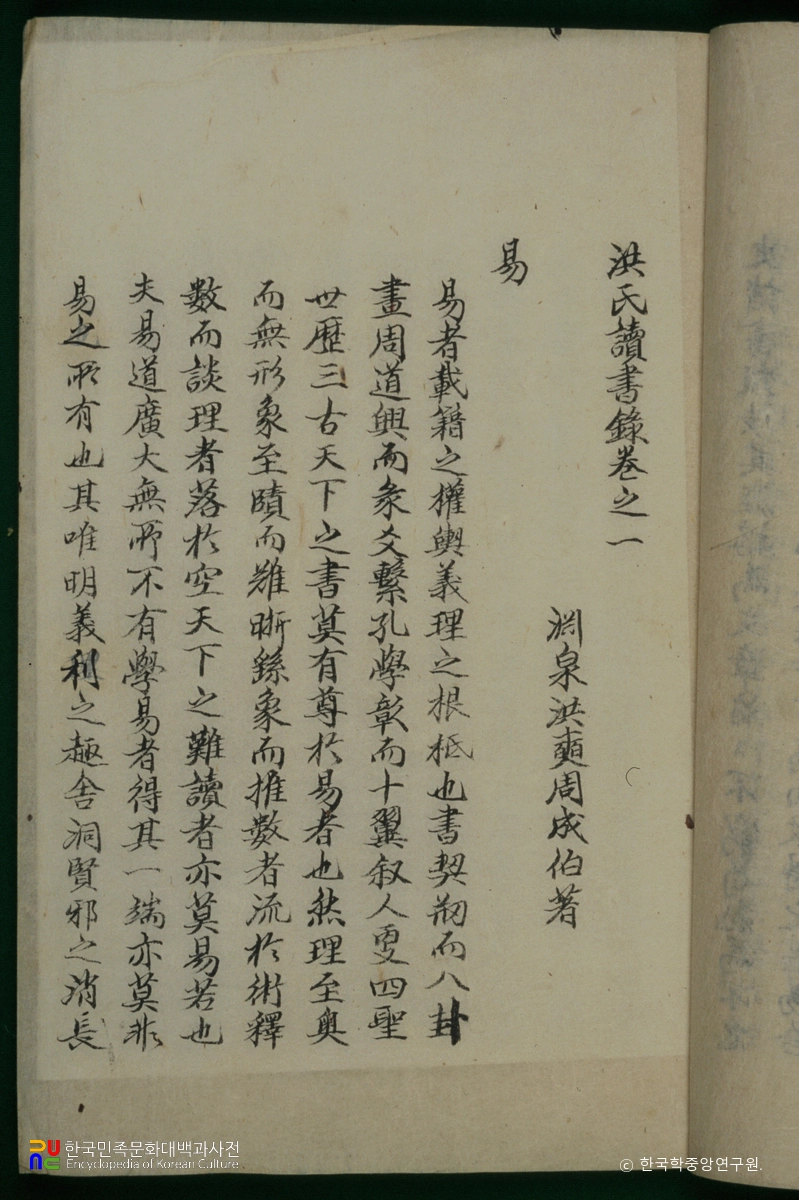 洪氏讀書錄卷之一
淵泉洪奭周成伯著
易
易者載籍之權輿義理之根柢也書契刱而八卦
畫周道興而彖爻繫孔學彰而十翼叙人更四聖
世歷三古天下之書莫有尊於易者也然理至奧
而無形象至賾而難晰繇象而推數者流於術釋
數而談理者落於空天下之難讀者亦莫易若也
夫易道廣大無所不有學易者得其一端亦莫非
易之所有也其唯明義利之趣舍洞賢邪之消長
한국민족문화대백과사전
Encyclopedia of Korean Culture
© 한국학중앙연구원.